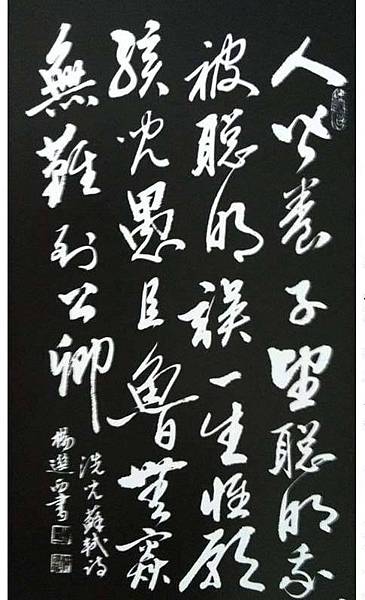 人皆養子望聰明我
被聰明誤一生惟願
孩兒愚且魯無灾
無難到公卿
洗兒蘇軾詩
楊選西書